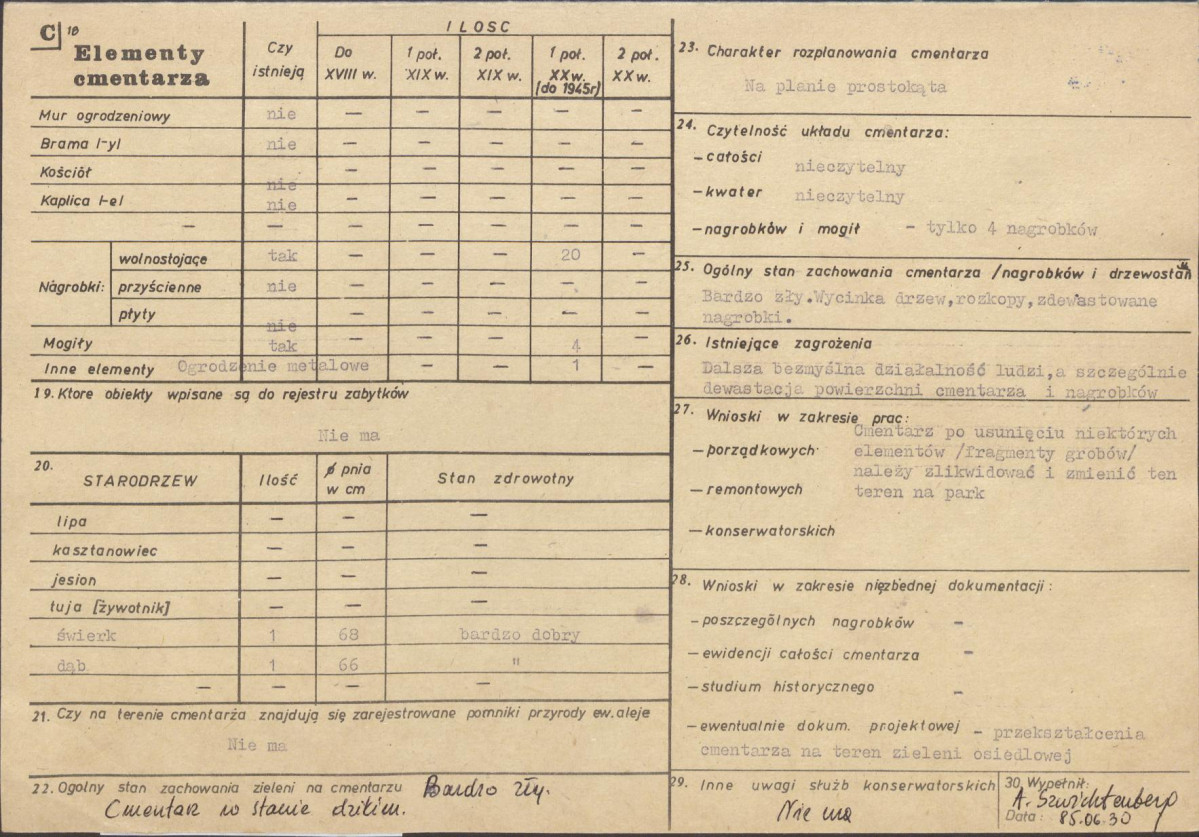 C 18
Elementy cmentarza | Czy istnieją | ILOSC
Do XVIII w. | 1 poł. XIX w. | 2 poł. XIX w. | 1 poł. XX w. (do 1945r) | 2 poł. XX w.
Mur ogrodzeniowy | nie | — | — | — | — | —
Brama /-y/ | nie | — | — | — | — | —
Kościół | nie | — | — | — | — | —
Kaplica /-e/ | nie | — | — | — | — | —
— | — | — | — | — | — | —
Nagrobki: wolnostojące | tak | — | — | — | 20 | —
przyścienne | nie | — | — | — | — | —
płyty | nie | — | — | — | — | —
Mogiły | tak | — | — | — | 4 | —
Inne elementy Ogrodzenie metalowe | — | — | 1 | —
19. Ktore obiekty wpisane są do rejestru zabytków
Nie ma
20.
STARODRZEW | Ilość | ø pnia w cm | Stan zdrowotny
lipa | — | — | —
kasztanowiec | — | — | —
jesion | — | — | —
tuja [żywotnik] | — | — | —
świerk | 1 | 68 | bardzo dobry
dąb | 1 | 66 | "
— | — | — | —
21. Czy na terenie cmentarża znajdują się zarejestrowane pomniki przyrody ew. aleje
Nie ma
22. Ogolny stan zachowania zieleni na cmentarzu Bardzo zły.
Cmentarz w stanie dzikim.
23. Charakter rozplanowania cmentarza
Na planie prostokąta
24. Czytelność układu cmentarza:
— całości nieczytelny
— kwater nieczytelny
— nagrobków i mogił - tylko 4 nagrobków
25. Ogólny stan zachowania cmentarza /nagrobków i drzewostan
Bardzo zły.Wycinka drzew,rozkopy,zdewastowane
nagrobki.
26. Istniejące zagrożenia
Dalsza bezmyślna działalność ludzi,a szczególnie
dewastacja powierzchni cmentarza i nagrobków
27. Wnioski w zakresie prac:
Cmentarz po usunięciu niektórych
— porządkowych elementów /fragmenty grobów/
należy zlikwidować i zmienić ten
— remontowych teren na park
— konserwatorskich
28. Wnioski w zakresie niezbędnej dokumentacji:
— poszczególnych nagrobków -
— ewidencji całości cmentarza -
— studium historycznego -
— ewentualnie dokum. projektowej - przekształcenia
cmentarza na teren zieleni osiedlowej
29. Inne uwagi służb konserwatorskich
Nie ma
30. Wypełnił:
A. Szwichtenberg
Data: 85.06.30